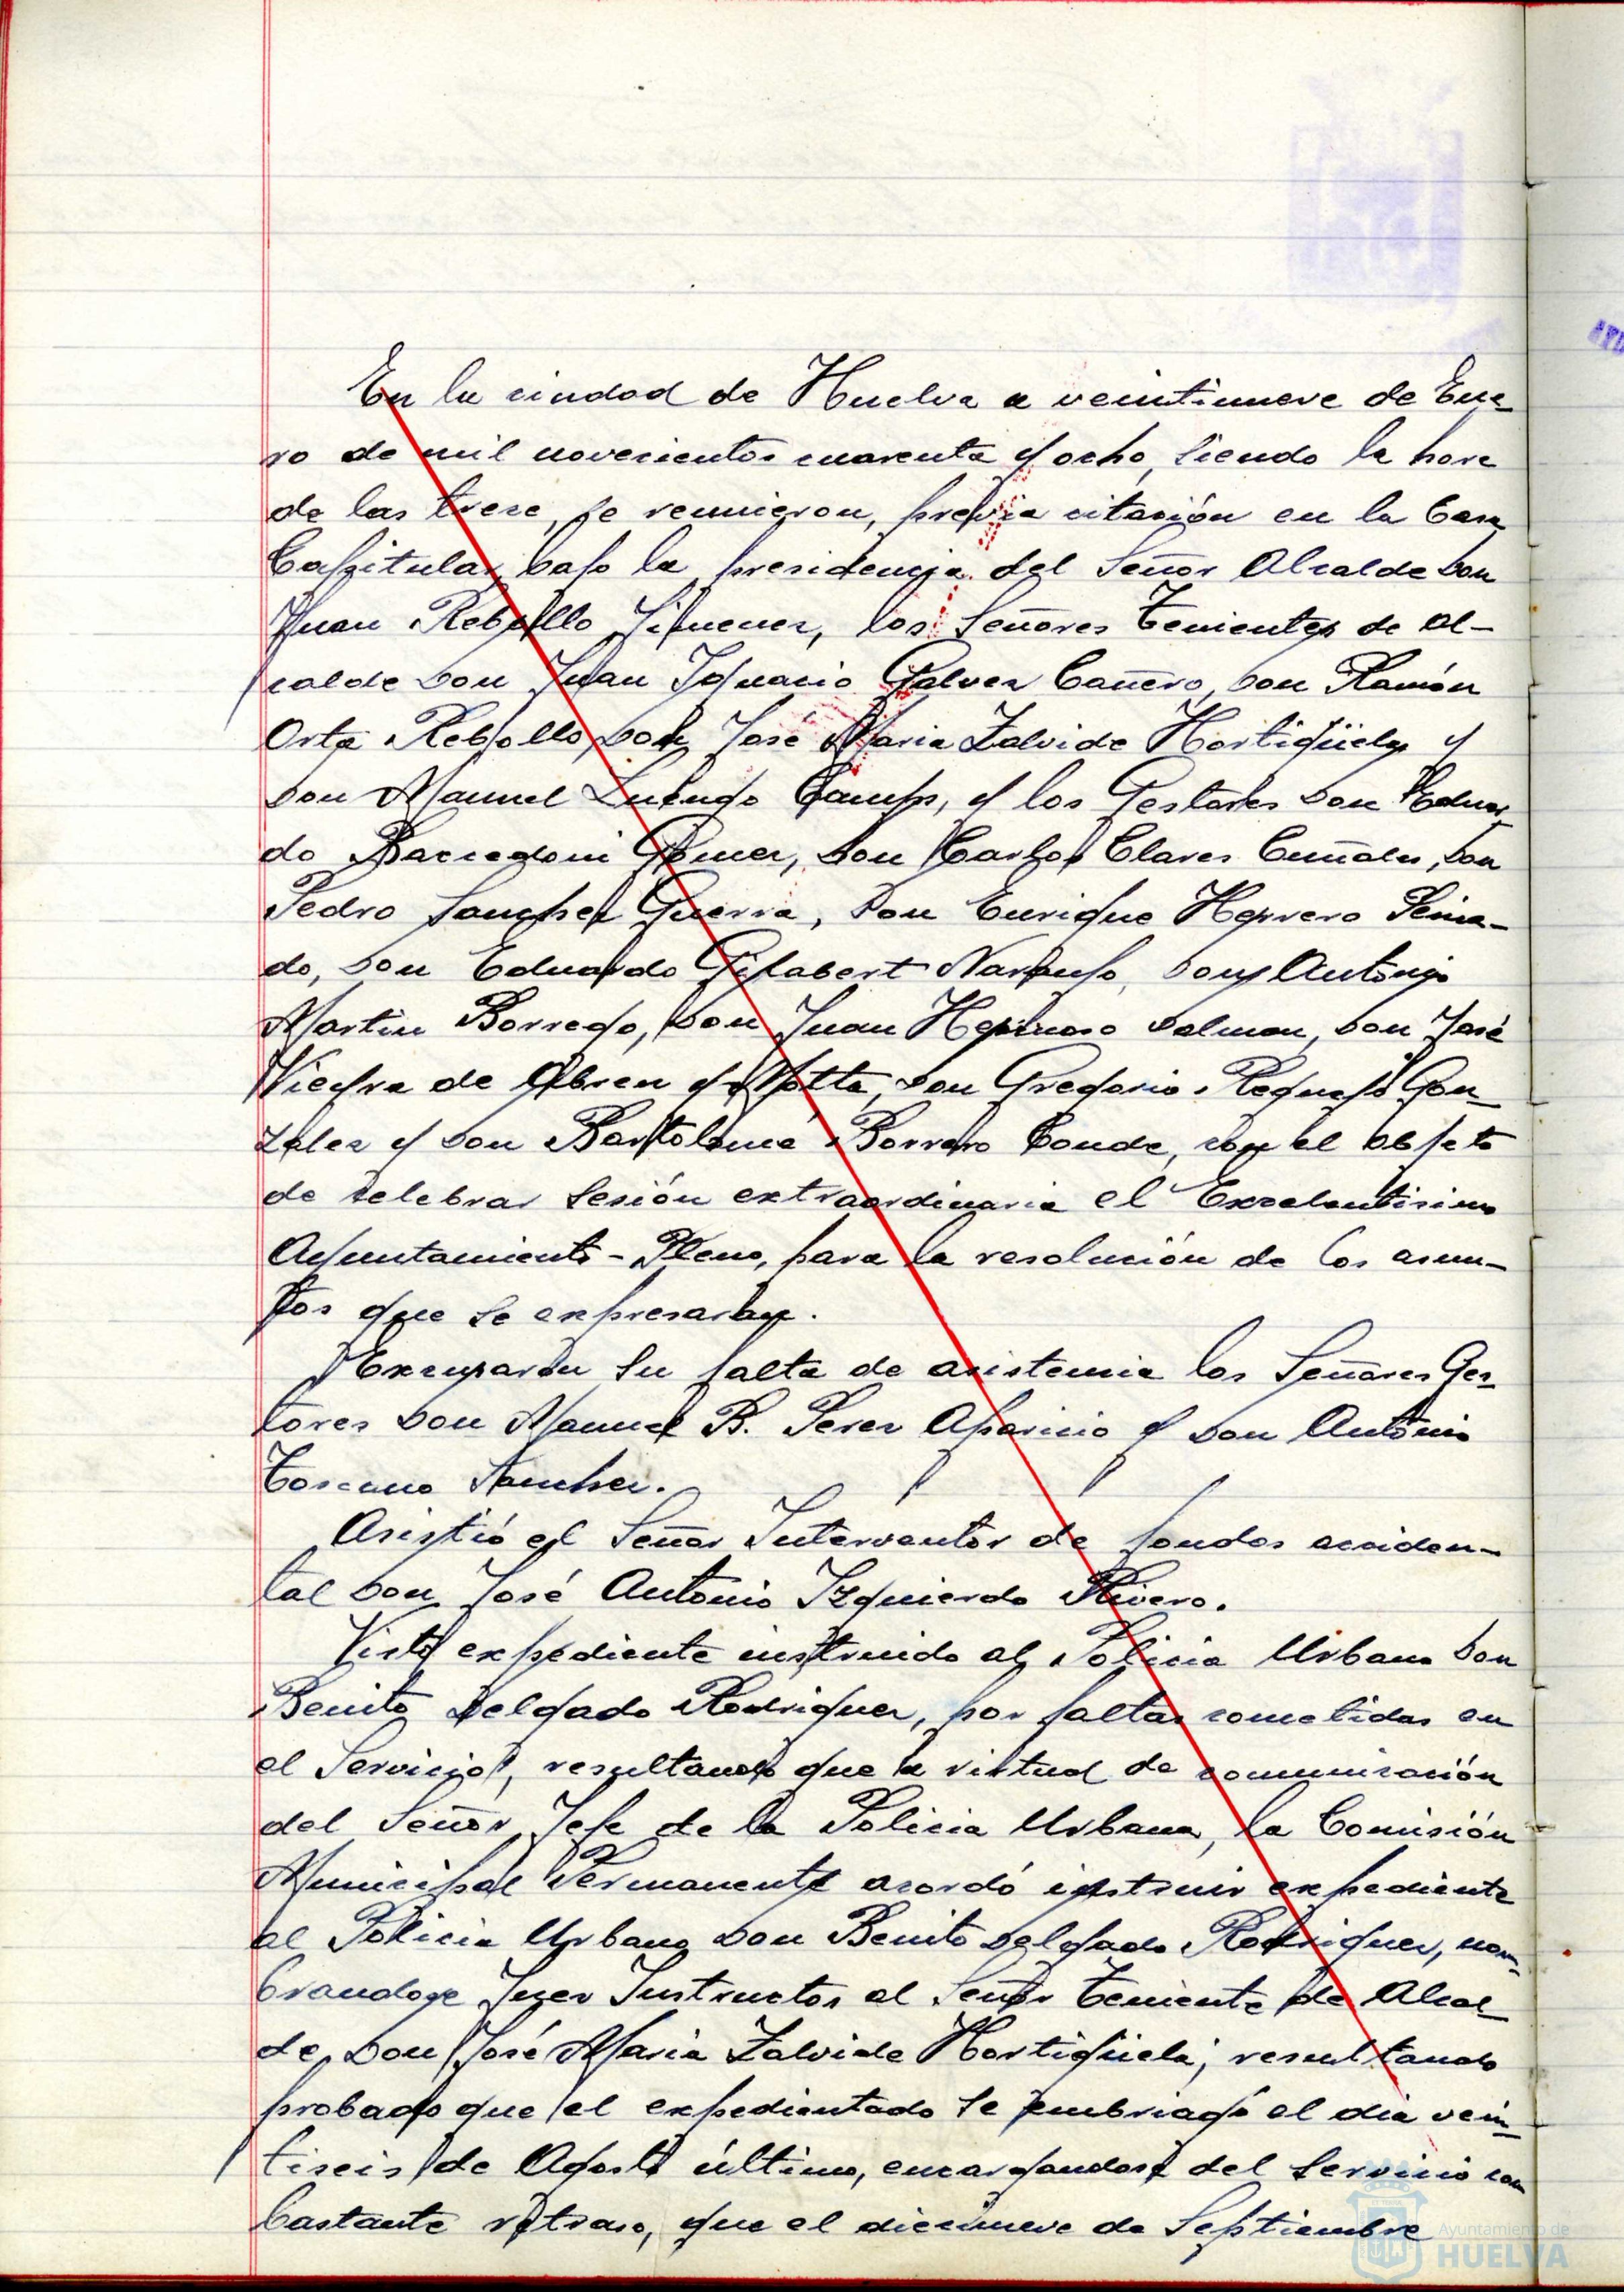 En la ciudad de Huelva a veintinueve de Ene-
ro de mil novecientos cuarenta y ocho, siendo la hora
de las trece, se reunieron, previa citación en la Casa
Capitular, bajo la presidencia del Señor Alcalde Don
Juan Rebollo Jimenez, los Señores Tenientes de Al-
calde Don Juan Ignacio Galvez Cañero, Don Ramón
Orta Rebollo, Don José Maria Zalvide Hortigüela y
Don Manuel Luengo Camps, y los Gestores Don Eduar-
do Gomez, Don Carlos Claves Don
Pedro Sanchez Guerra, Don Enrique Herrero Peina-
do, Don Eduardo Gilabert Naranjo, Don Antonio
Martin Borrego, Don Juan Hermoso Dalmau, Don José
Vieyra de Abreu y Motta, Don Gregorio Requejo Gon-
zalez y Don Bartolomé Borrero Conde, con el objeto
de celebrar Sesión extraordinaria el Excelentisimo
Ayuntamiento-Pleno, para la resolución de los asun-
tos que se expresaran.
Excusaron su falta de asistencia los Señores Ges-
tores Don Manuel B. Perez Aparicio y Don Antonio
Toscano Sanchez.
Asistió el Señor Interventor de fondos acciden-
tal Don José Antonio Izquierdo Rivero.
Visto expediente instruido al Policia Urbano Don
Benito Delgado Rodriguez, por faltas cometidas en
el Servicio, resultando que a virtud de comunicación
del Señor Jefe de la Policia Urbana, la Comisión
Municipal Permanente acordó instruir expediente
al Policia Urbano Don Benito Delgado Rodriguez, nom-
brandose Juez Instructor al Señor Teniente de Alcal-
de, Don José Maria Zalvide Hortigüela; resultando
probado que el expedientado se embriagó el dia vein-
tiseis de Agosto último, encargandose del Servicio con
bastante retraso, que el diecinueve de Septiembre
Ayuntamiento de
HUELVA